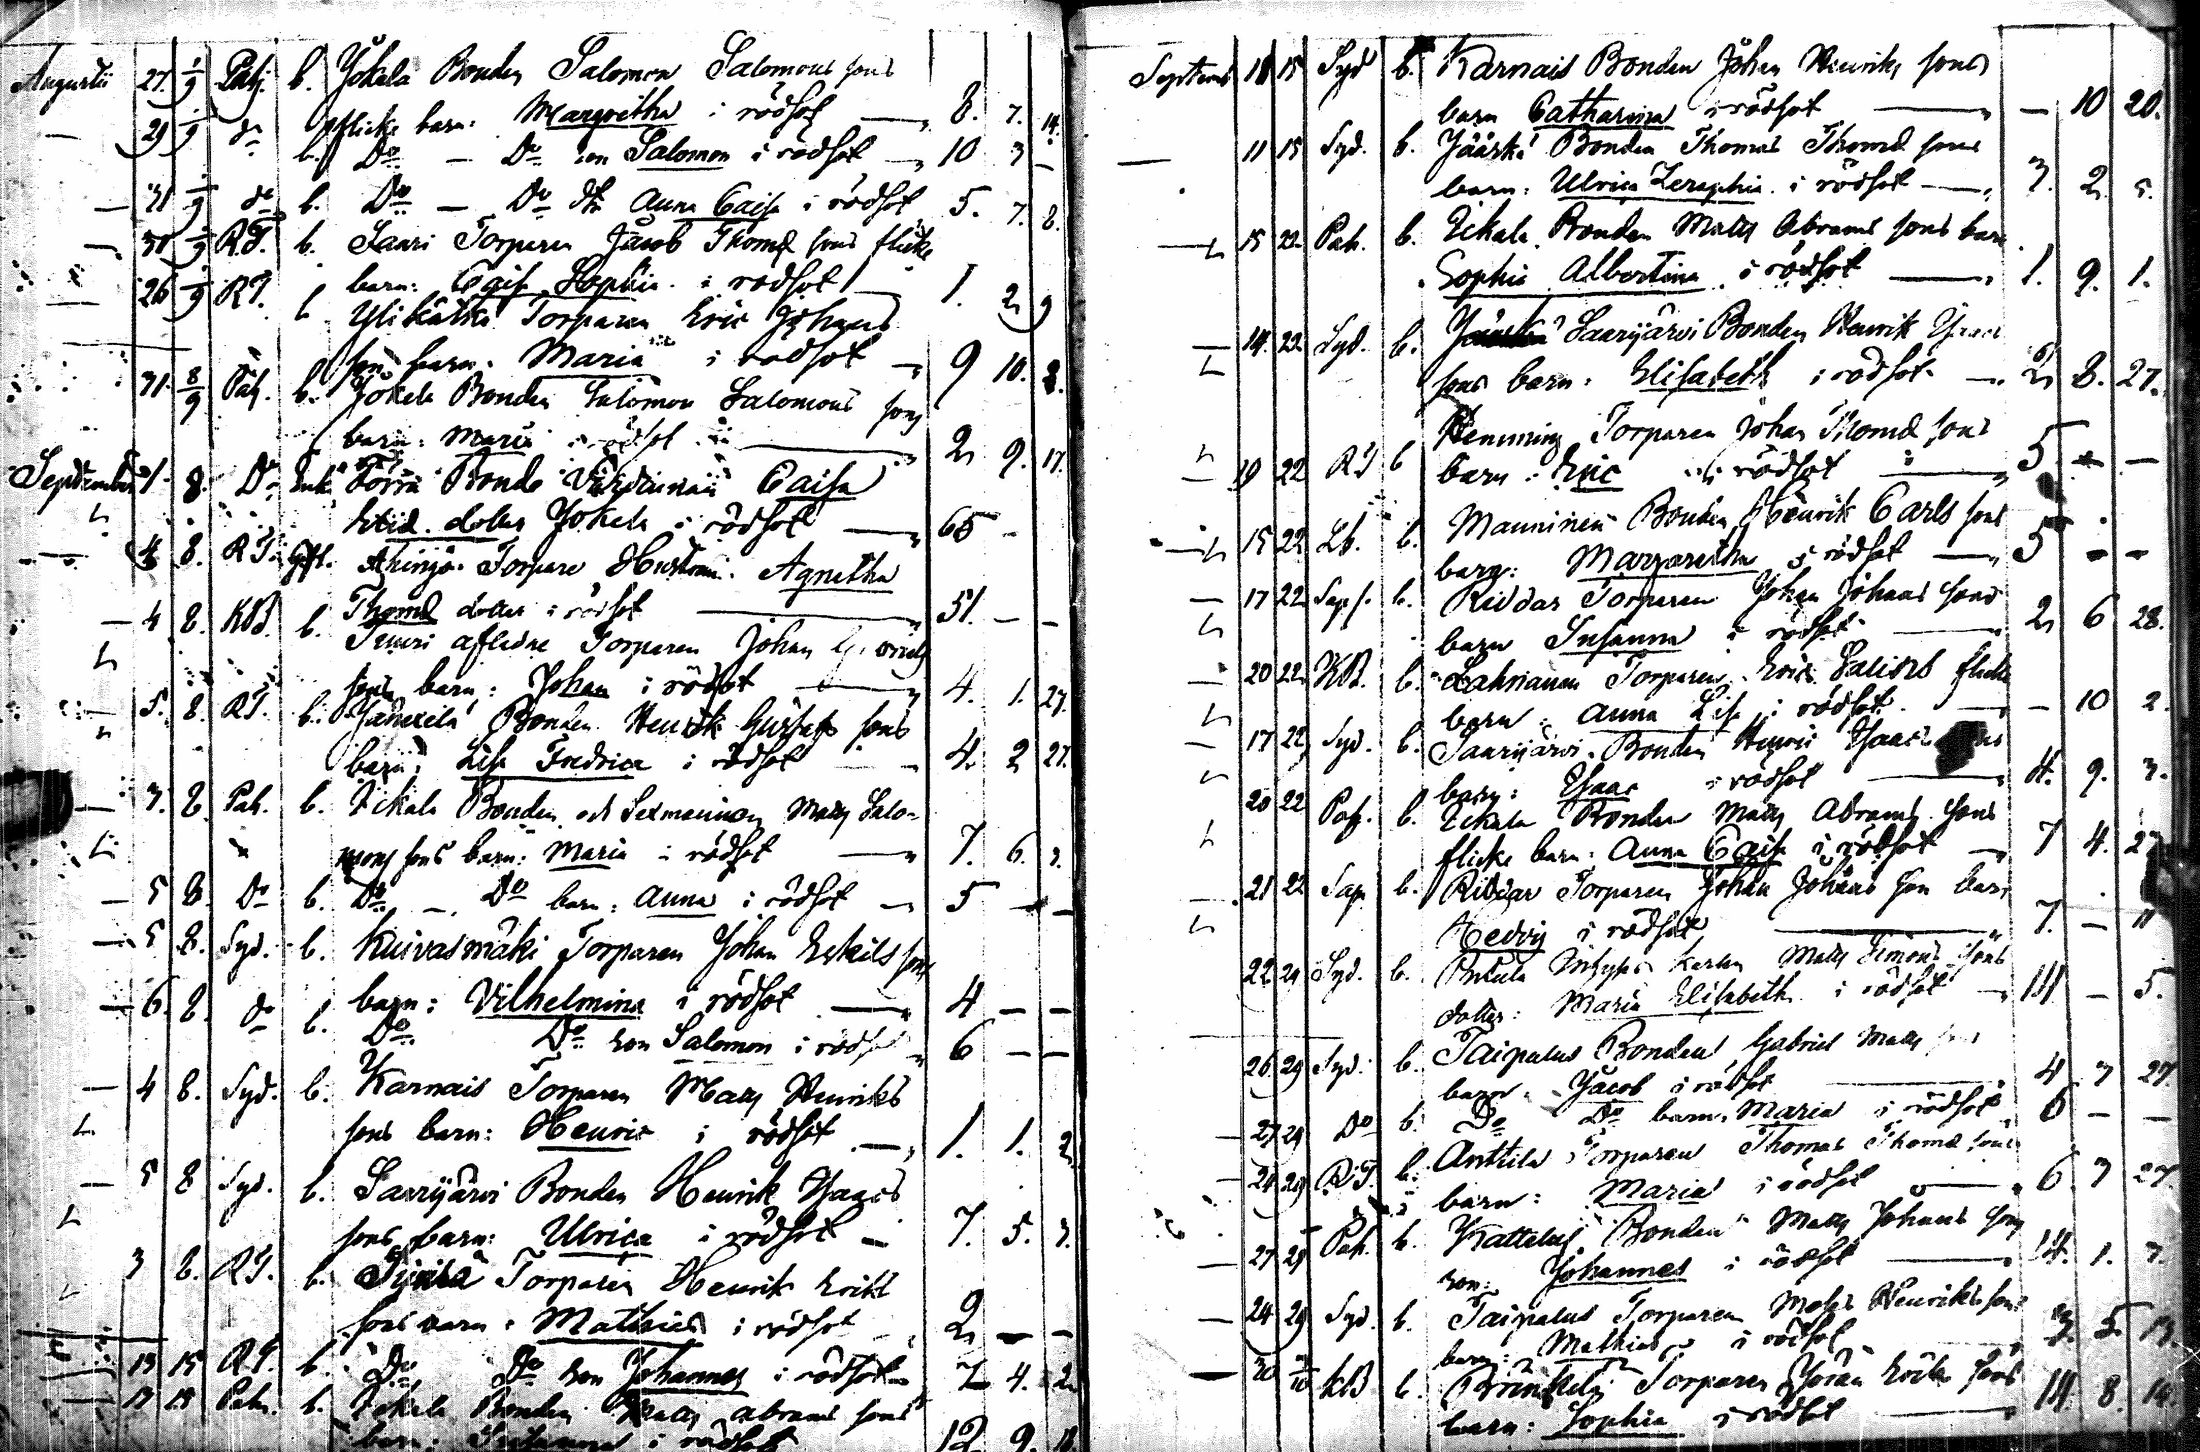 Augustii 27. 1/9 Pahj. b. Jokela Bonden Salomon Salomons sons
flicke barn: Margretha i rödsot — 8. 7. 14.
— 29 1/9 do b. Do — Do son Salomon i rödsot — 10 3 —
— 31 1/9 do b. Do — Do dtr Anna Caisa i rödsot 5. 7. 8.
— 30 1/9 RT. b. Saari Torparen Jacob Thomæ sons flicke
barn: Caisa Sophia i rödsot — 1. 2 9
— 26 1/9 RT. b. Torparen Eric Johans
son barn. Maria i rödsot — 9 10. 8.
31. 8/9 Pah. b. Jokela Bonden Salomon Salomons sons
barn: Maria i rödsot — 2 9. 17.
September 1. 8. Do Enk. Bonde Caisa
dotter Jokela i rödsot — 65 —
4 8. RT. Gft. Torpare Hustrun Agnetha
Thomæ dotter i rödsot — 51. — —
— 4 8. KB. b. afledne Torparen Johan
sons barn: Johan i rödsot — 4. 1. 27.
— 5. 8. RT. b. Bonden Henrik Gustafs sons
barn: Lisa Fredrica i rödsot — 4. 2 27.
— 3. 8 Pah. b. Eckala Bonden och Sexmannen Matts Salo-
mons sons barn: Maria i rödsot — 7. 6. 3.
— 5 8. Do b. Do — Do barn: Anna i rödsot — 5 — —
— 5 8. Syd. b. Kuivasmäki Torparen Johan Eskils sons
barn: Vilhelmina i rödsot — 4 — —
— 6. 8. do b. Do Do son Salomon i rödsot 6 — —
— 4 8. Syd. b. Karnais Torparen Matts Henriks
sons barn: Henric i rödsot — 1. 1. 2
— 5 8 Syd. b. Saarijärvi Bonden Henrik Isaacs
sons barn: Ulrica i rödsot — 7. 5. 3.
3 8. RT. b. Torparen Henrik Eriks
sons barn: Mathias i rödsot 2 — —
13 15 RT. b. Do Do son Johannes i rödsot — 7 4. 2
13 15 Pah. b. Eckala Bonden Matts Abrams sons
barn: Susanna i rödsot 12. 9. 18
Septemb 11 15 Syd b. Karnais Bonden Johan Henriks sons
barn Catharina i rödsot — — 10 20.
— 11 15 Syd. b. Jääskä Bonden Thomas Thomæ sons
barn: Ulrica Seraphia i rödsot — 3. 2 5.
— 15 22 Pah. b. Eckala Bonden Matts Abrams sons barn
Sophia Albertina i rödsot — 1. 9. 1.
— 14. 22 Syd. b. Saarijärvi Bonden Henrik Isaacs
sons barn: Elisabeth i rödsot — 2 8. 27.
Hemming Torparen Johan Thomæ sons
— 19 22 RT b barn: Eric i rödsot — 5 — —
— 15 22 Lb. b. Manninen Bonden Henrik Carls sons
barn: Margaretha i rödsot — 5 — —
— 17 22 Sap. b. Riddar Torparen Johan Johans sons
barn Susanna i rödsot — 2 6 28.
— 20 22 KB. b. Torparen Eric flicke
barn: Anna Lisa i rödsot — — 10 2.
— 17 22 Syd. b. Saarijärvi Bonden Henric Isaacs
barn: Isaac i rödsot — 4. 9. 3.
20 22 Pah. b. Eckala Bonden Matts Abrams sons
flicke barn: Anna Caisa i rödsot — 7 4. 27
— 21 22 Sap b. Riddar Torparen Johan Johans son barn
Hedvig i rödsot — 7. — 11
22 29 Syd. b. Karlen Matts Simons sons
dotter: Maria Elisabeth i rödsot — 14 — 5.
26 29 Syd. b. Taipalus Bonden Gabriel Matts sons
barn. Jacob i rödsot — 4 7 27.
— 27 29 Do b. Do Do barn. Maria i rödsot 6 — —
— 24 29 RT. b. Anttila Torparen Thomas Thomæ sons
barn: Maria i rödsot — 6. 7 27.
27 29 Pah. b. Kattelus Bonden Matts Johans sons
son: Johannes i rödsot — 14. 1. 7.
— 24 29 Syd. b. Taipalus Torparen Matts Henriks sons
barn: Mathias i rödsot — 3. 5. 13.
— 30 KB b. Torparen Johan Eriks sons
barn: Sophia i rödsot — 14. 8. 14.